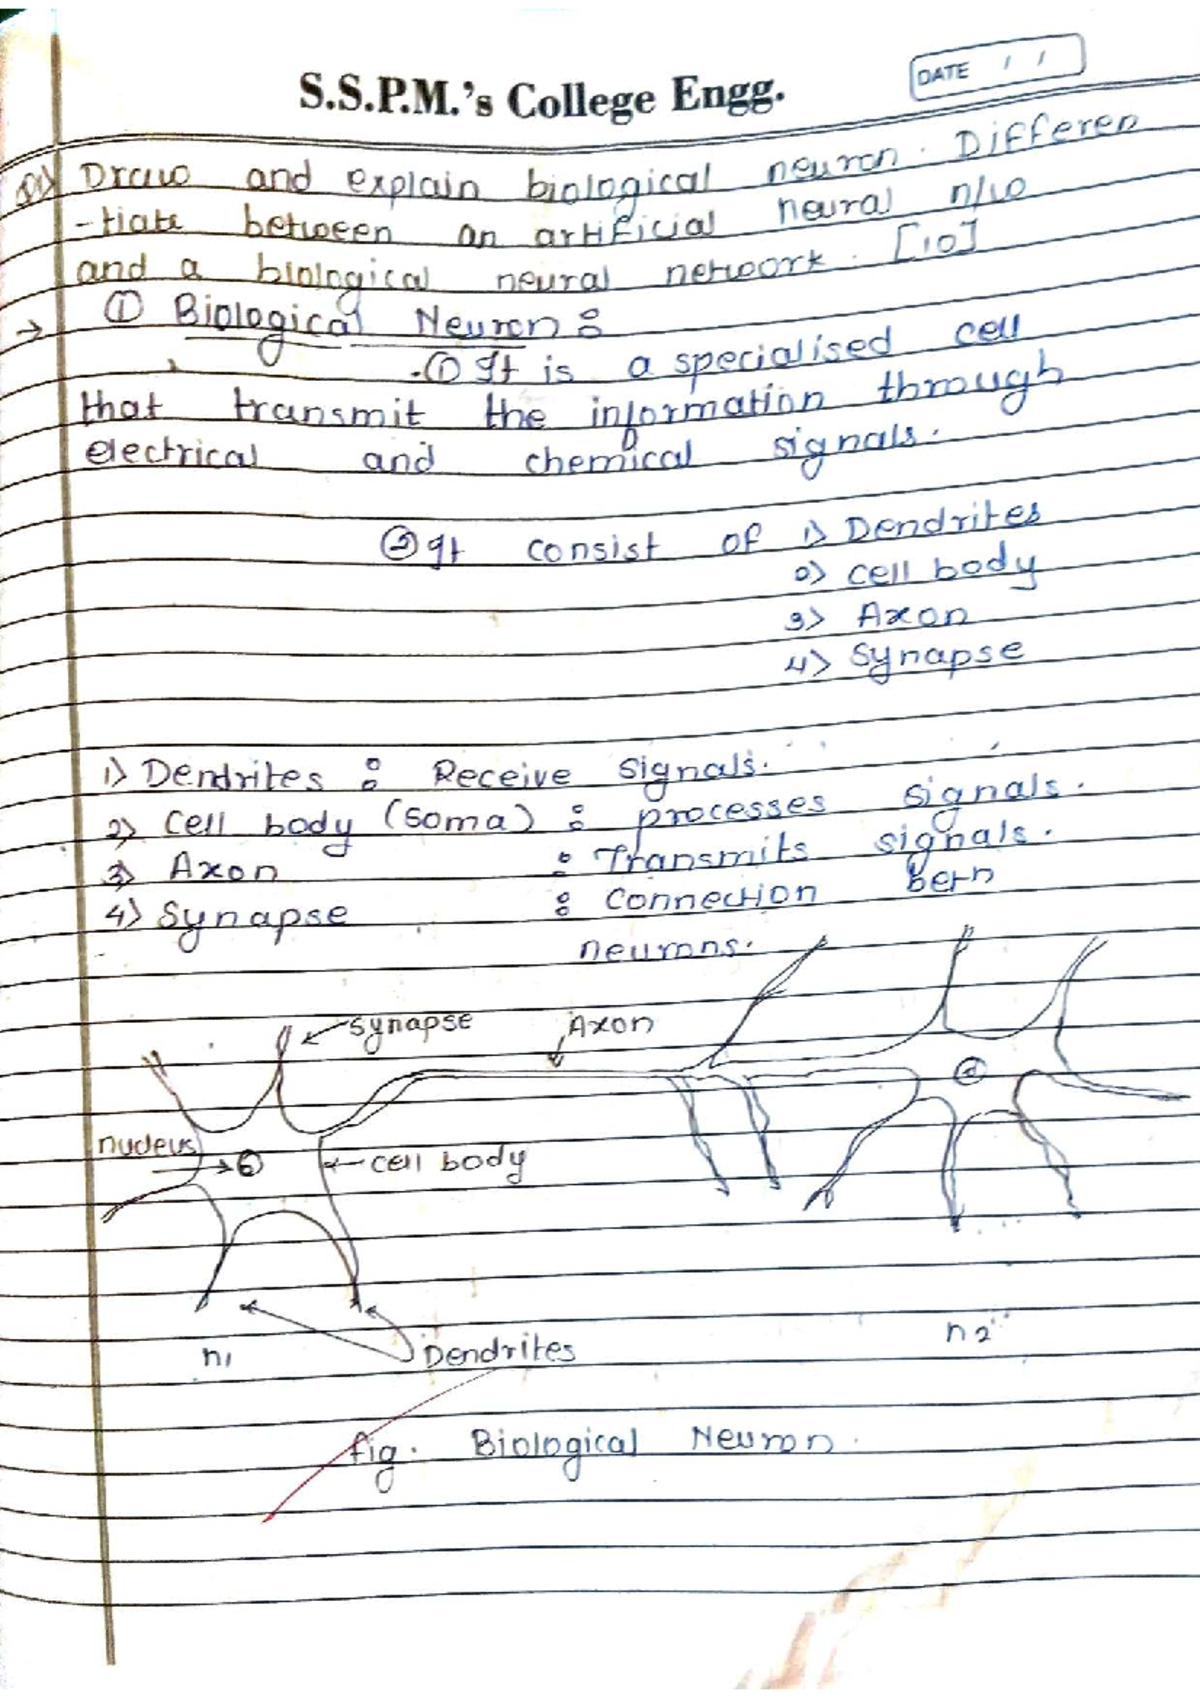 S.S.P.M.'s College Engg.
DATE / /
Q1) Draw and explain biological neuron. Differen
-tiate between an artificial neural n/w
and a biological neural network. [10]
→ ① Biological Neuron :
① It is a specialised cell
that transmit the information through
electrical and chemical signals.
② It consist of 1) Dendrites
2) cell body
3) Axon
4) Synapse
1) Dendrites : Receive signals.
2) Cell body (soma) : processes signals.
3) Axon : Transmits signals.
4) Synapse : Connection betn
neurons.
synapse
Axon
nucleus
cell body
Dendrites
n1
n2
fig. Biological Neuron.